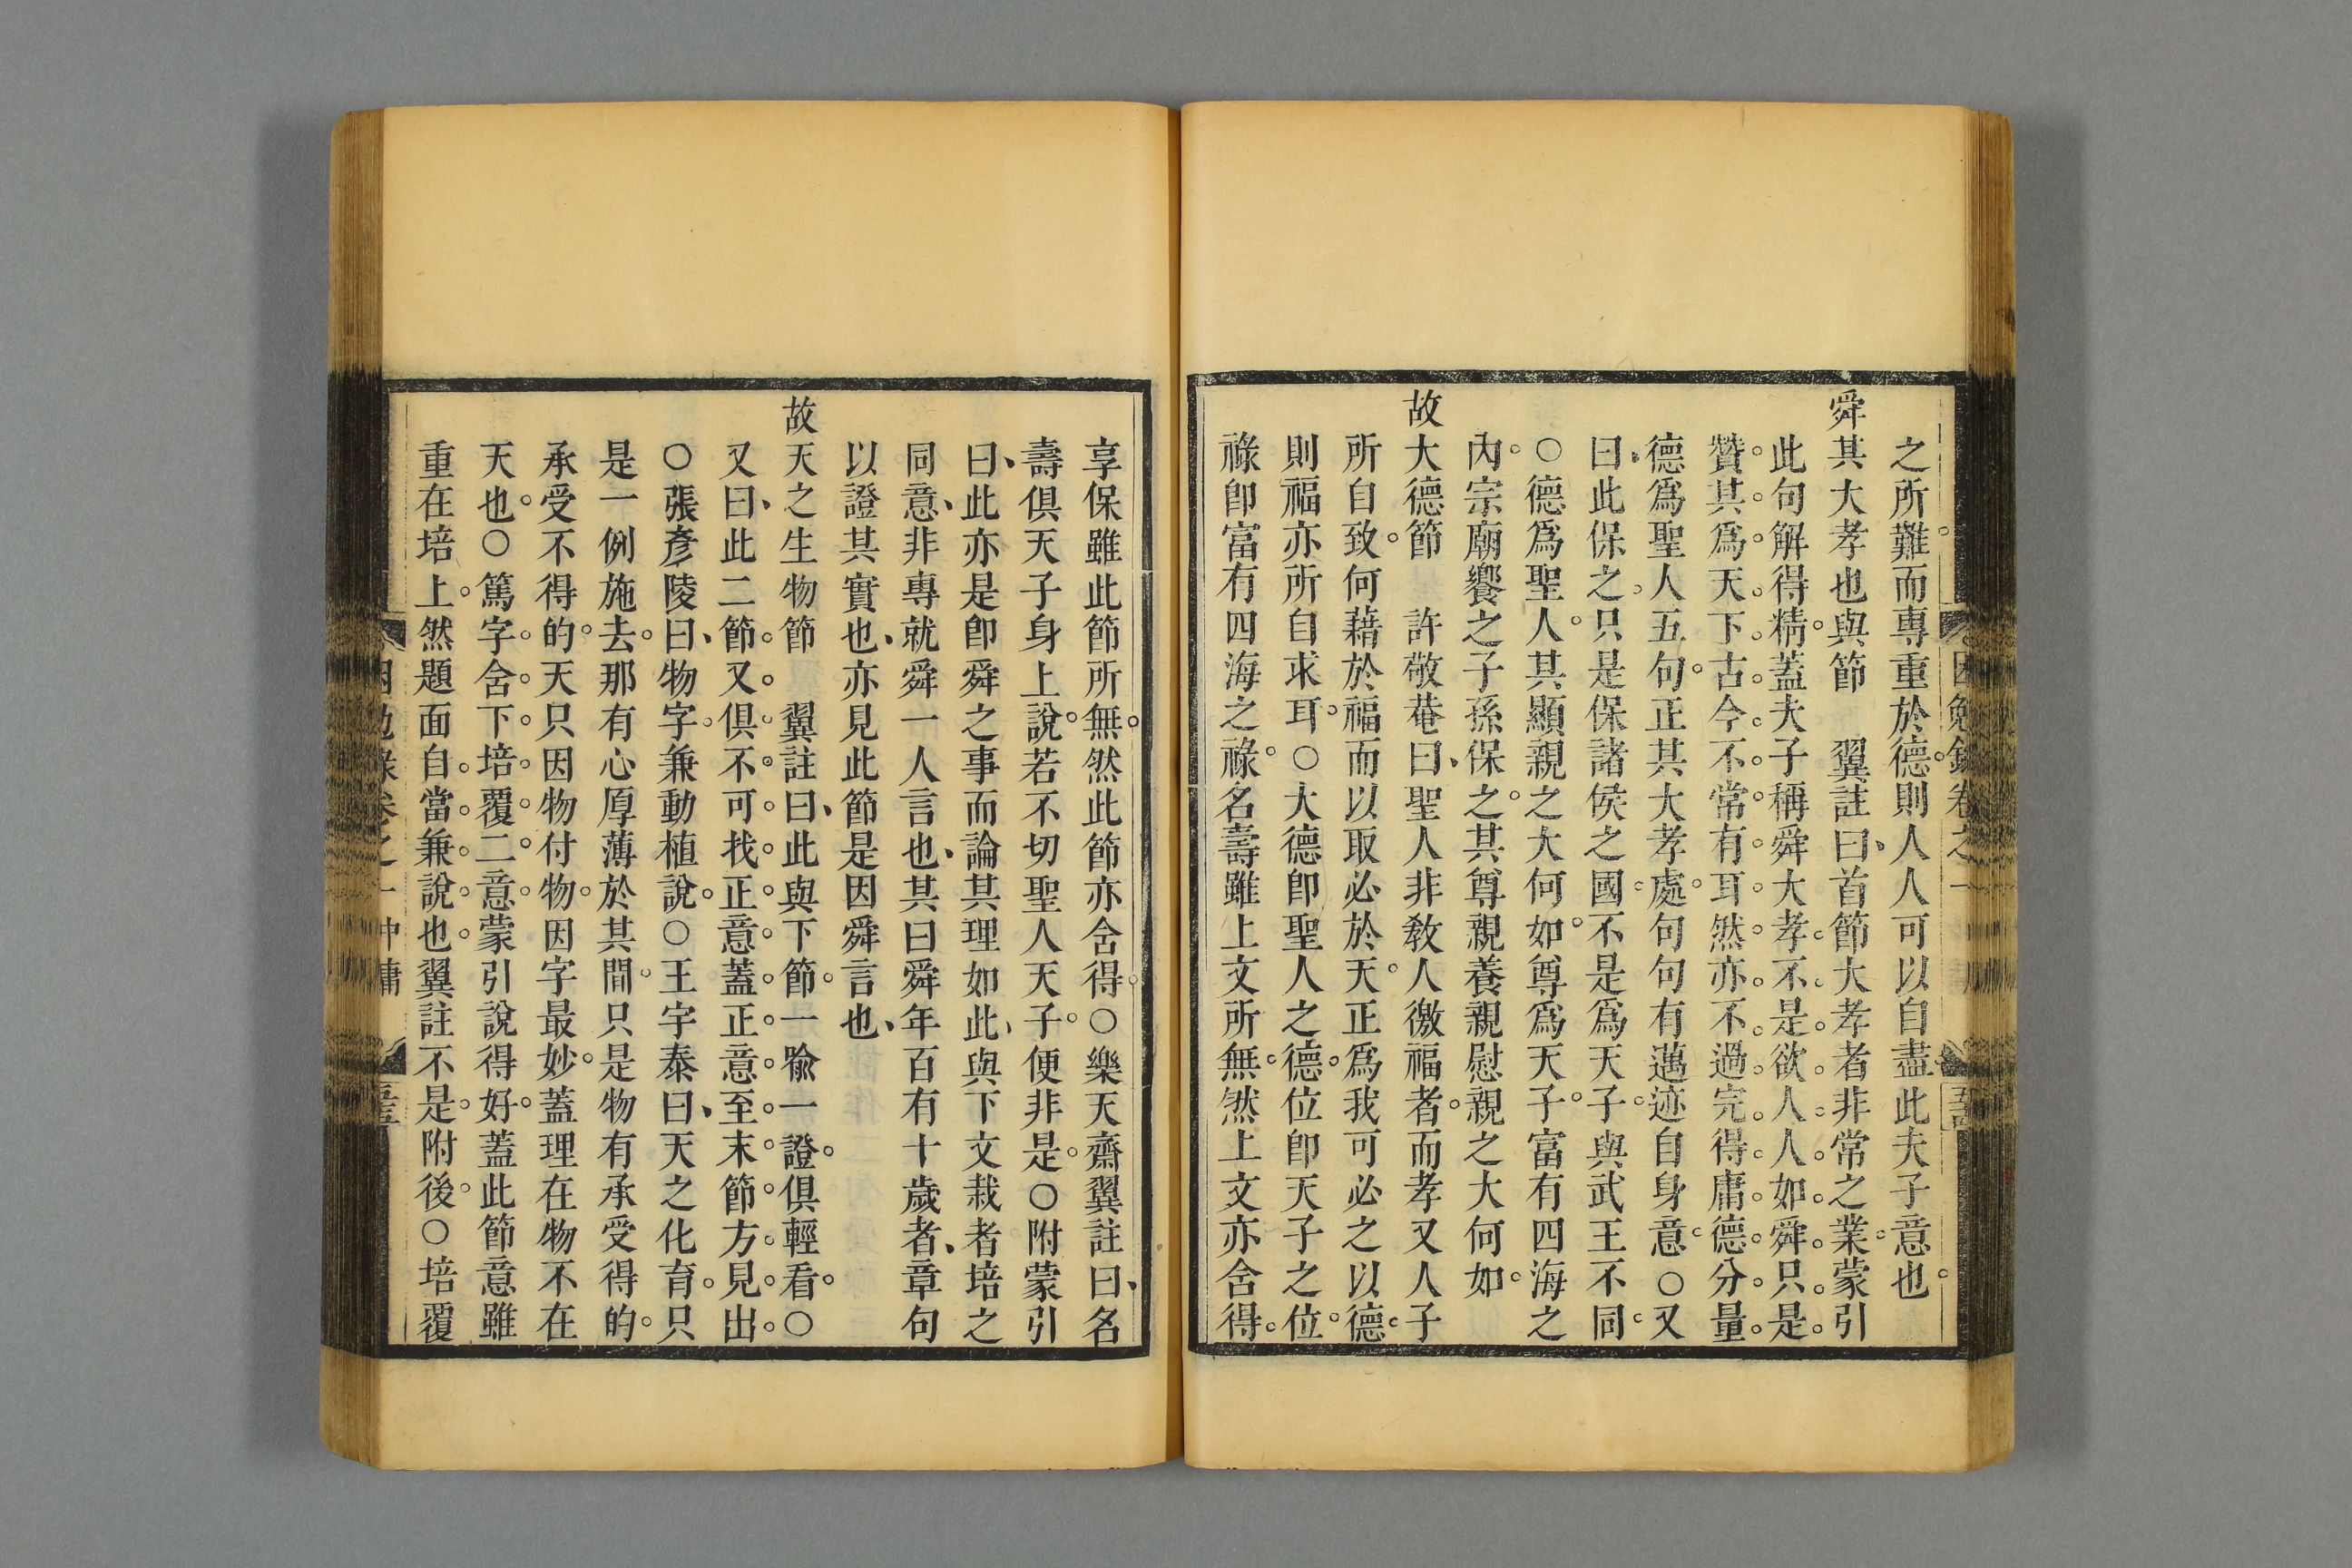 之所難而專重於德則人人可以自盡此夫子意也
舜其大孝也與節　翼註曰首節大孝者非常之業蒙引
此句解得精蓋夫子稱舜大孝不是欲人人如舜只是
贊其爲天下古今不常有耳然亦不過完得庸德分量
德爲聖人五句正其大孝處句句有邁迹自身意○又
曰此保之只是保諸侯之國不是爲天子與武王不同
○德爲聖人其顯親之大何如尊爲天子富有四海之
內宗廟饗之子孫保之其尊親養親慰親之大何如
故大德節　許敬菴曰聖人非敎人徼福者而孝又人子
所自致何藉於福而以取必於天正爲我可必之以德
則福亦所自求耳○大德卽聖人之德位卽天子之位
祿卽富有四海之祿名壽雖上文所無然上文亦含得
享保雖此節所無然此節亦含得○樂天齋翼註曰名
壽俱天子身上說若不切聖人天子便非是○附蒙引
曰此亦是卽舜之事而論其理如此與下文栽者培之
同意非專就舜一人言也其曰舜年百有十歲者章句
以證其實也亦見此節是因舜言也
故天之生物節　翼註曰此與下節一喻一證俱輕看○
又曰此二節又俱不可找正意蓋正意至末節方見出
○張彥陵曰物字兼動植說○王字泰曰天之化育只
是一例施去那有心厚薄於其間只是物有承受得的
承受不得的天只因物付物因字最妙蓋理在物不在
天也○篤字含下培覆二意蒙引說得好蓋此節意雖
重在培上然題面自當兼說也翼註不是附後○培覆